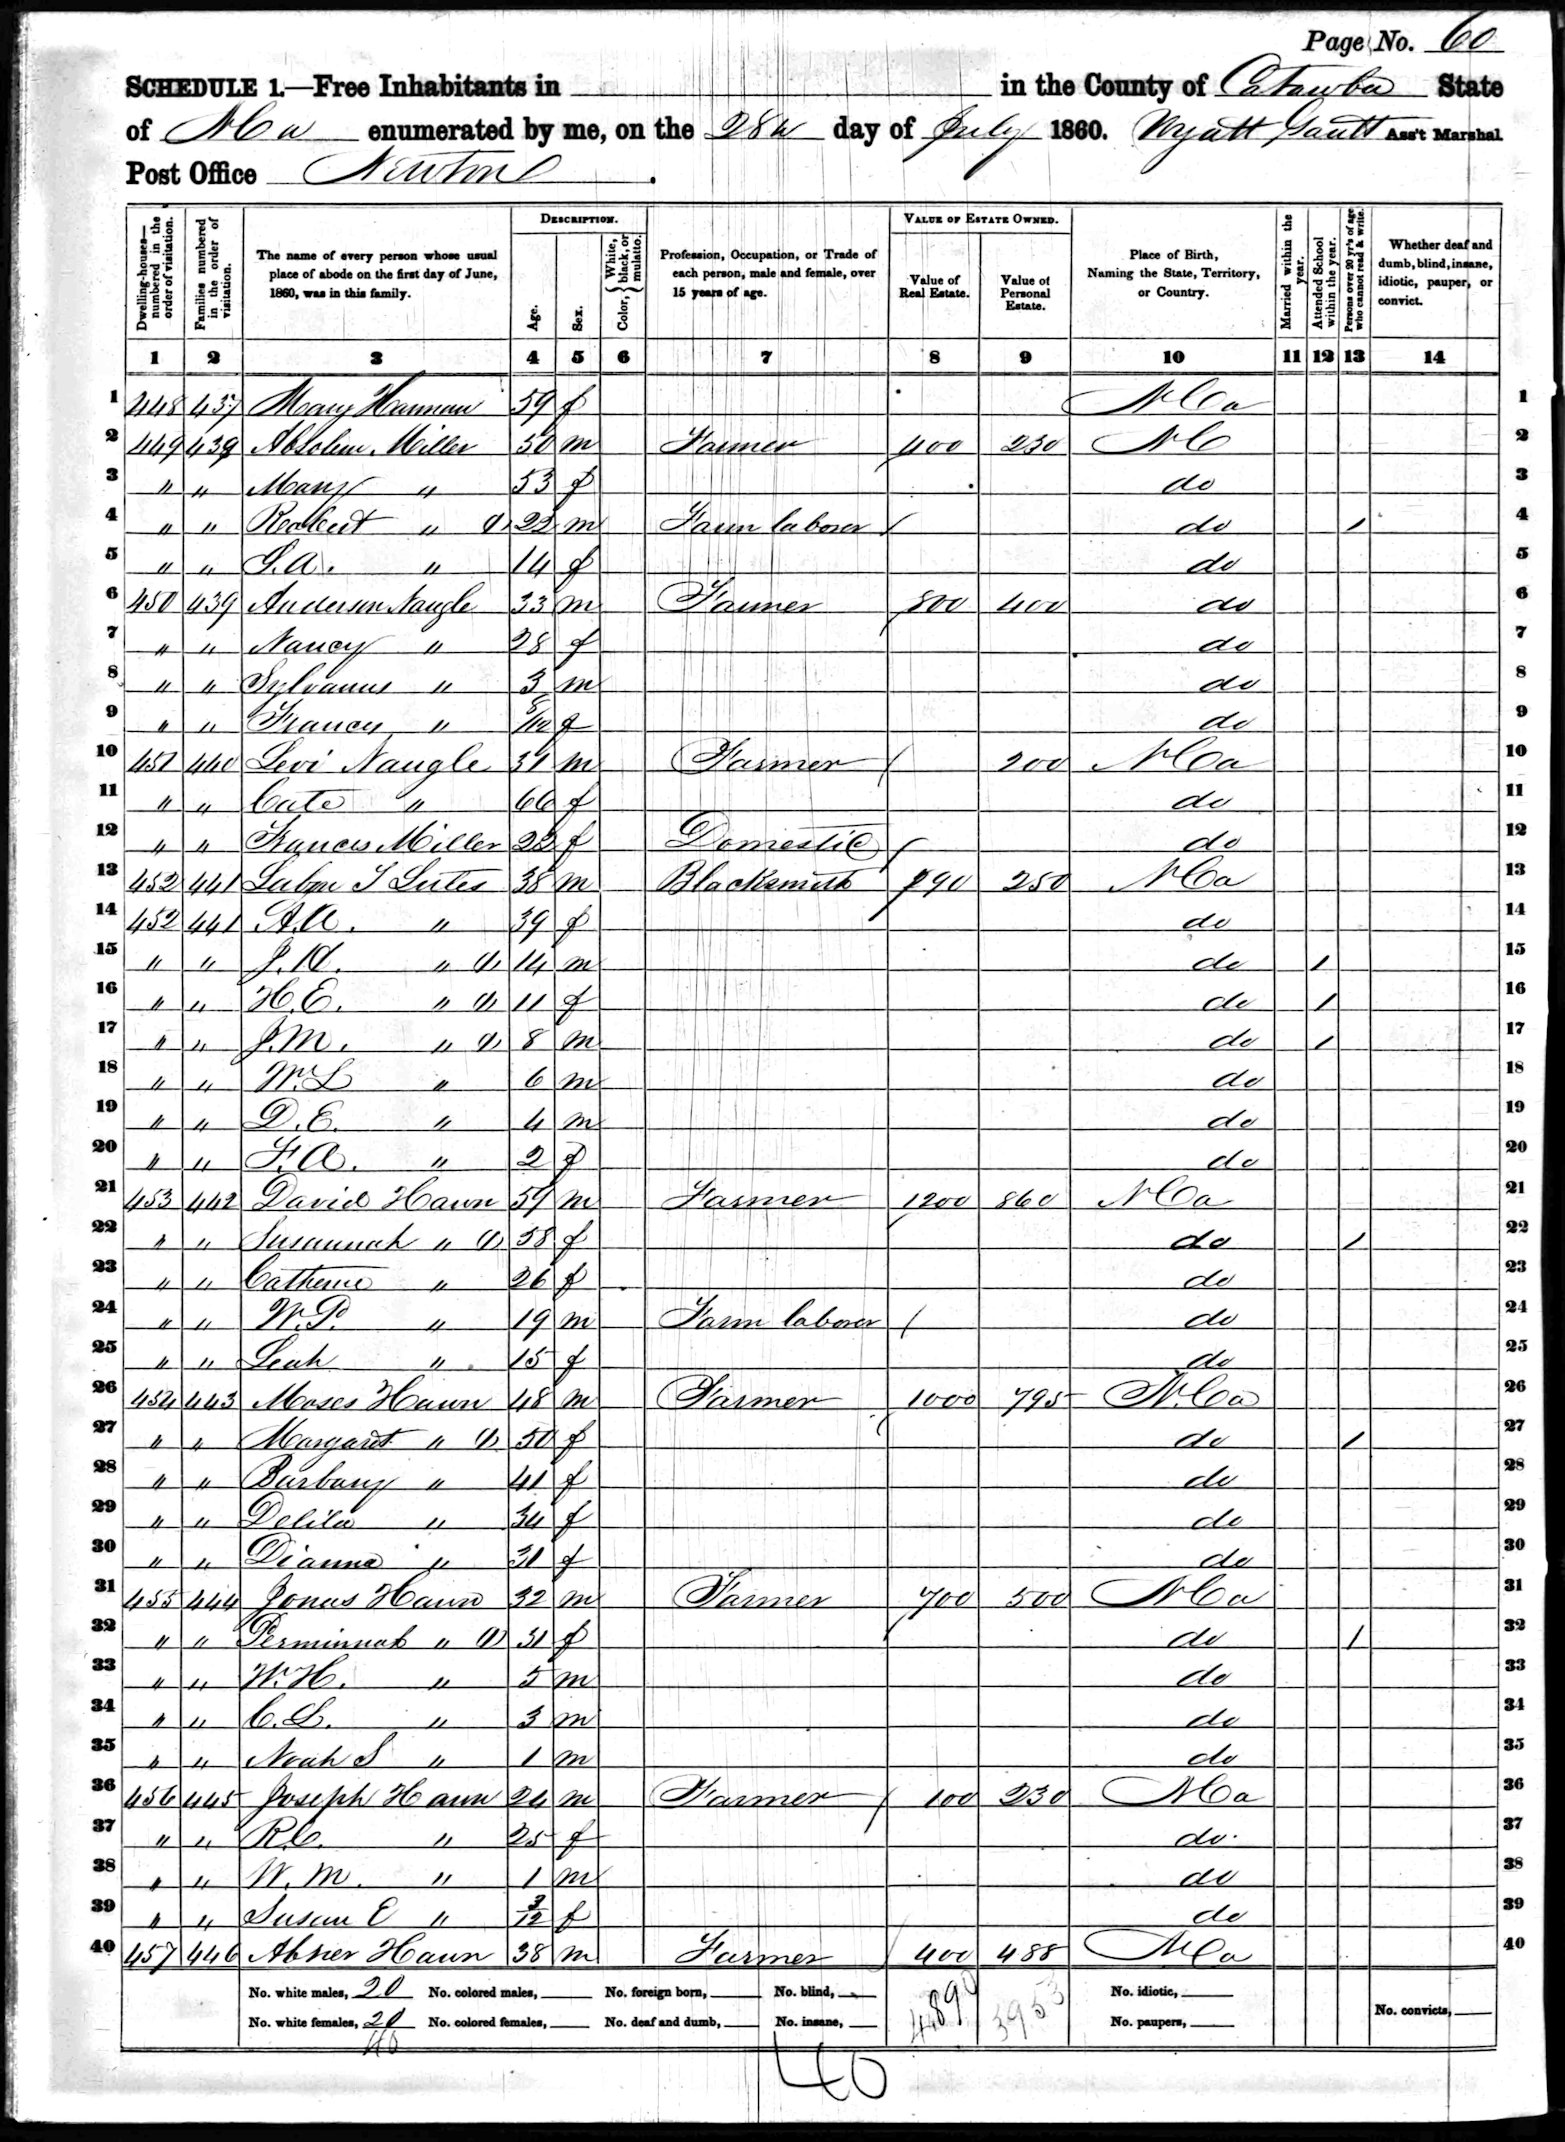 Page No. 60
SCHEDULE 1.—Free Inhabitants in in the County of Catawba State
of N Ca enumerated by me, on the 28th day of July 1860. Wyatt Gantt Ass't Marshal
Post Office Newton.
Dwelling-houses—numbered in the order of visitation. Families numbered in the order of visitation. The name of every person whose usual place of abode on the first day of June, 1860, was in this family. DESCRIPTION. Age. Sex. Color, { White, black, or mulatto. Profession, Occupation, or Trade of each person, male and female, over 15 years of age. VALUE OF ESTATE OWNED. Value of Real Estate. Value of Personal Estate. Place of Birth, Naming the State, Territory, or Country. Married within the year. Attended School within the year. Persons over 20 yr's of age who cannot read & write. Whether deaf and dumb, blind, insane, idiotic, pauper, or convict.
1 2 3 4 5 6 7 8 9 10 11 12 13 14
1 448 437 Mary 59 f N Ca 1
2 449 439 Absolem Miller 50 m Farmer 400 230 N C 2
3 " " Mary " 53 f do 3
4 " " " (1) 22 m Farm laborer / do / 4
5 " " S. A. " 14 f do 5
6 450 439 Anderson Naugle 33 m Farmer 800 400 do 6
7 " " Nancy " 28 f do 7
8 " " Sylvanus " 3 m do 8
9 " " Francy " f do 9
10 451 440 Levi Naugle 31 m Farmer / 200 N Ca 10
11 " " Cate " 66 f do 11
12 " " Frances Miller 22 f Domestic / do 12
13 452 441 38 m Blacksmith 290 250 N Ca 13
14 452 441 A. A. " 39 f do 14
15 " " " (1) 14 m do / 15
16 " " H. E. " (1) 11 f do / 16
17 " " J. M. " (1) 8 m do / 17
18 " " W. L " 6 m do 18
19 " " D. E. " 4 m do 19
20 " " F. A. " 2 f do 20
21 453 442 David Hawn 59 m Farmer 1200 860 N Ca 21
22 " " Susannah " (1) 58 f do / 22
23 " " Catherine " 26 f do 23
24 " " W. P. " 19 m Farm laborer / do 24
25 " " Leah " 15 f do 25
26 454 443 Moses Hawn 48 m Farmer 1000 795 N. Ca 26
27 " " Margaret " (1) 50 f do / 27
28 " " Barbary " 41 f do 28
29 " " Delila " 34 f do 29
30 " " Dianna " 31 f do 30
31 455 444 Jonas Hawn 32 m Farmer 700 500 N Ca 31
32 " " Perminnah " (1) 31 f do / 32
33 " " W. H. " 5 m do 33
34 " " C. L. " 3 m do 34
35 " " Noah S " 1 m do 35
36 456 445 Joseph Hawn 24 m Farmer / 100 230 N Ca 36
37 " " R. C. " 25 f do 37
38 " " W. M. " 1 m do 38
39 " " Susan E " 3/12 f do 39
40 457 446 Abner Hawn 38 m Farmer 400 488 N Ca 40
No. white males, 20 No. colored males, No. foreign born, No. blind, 4890 3953 No. idiotic,
No. white females, 20 No. colored females, No. deaf and dumb, No. insane, No. paupers, No. convicts,
40
40